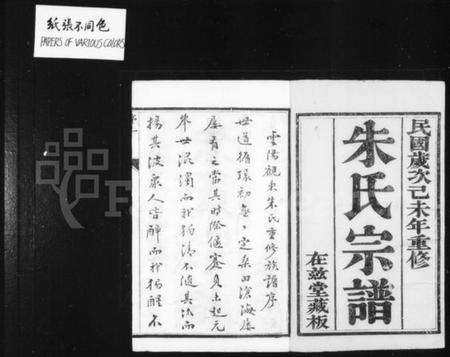 紙張不同色
PAPERS OF VARIOUS COLORS
民國歲次己未年重修
朱氏宗譜
在茲堂藏板
雲陽觀東朱氏重修族譜序
世道循環初無一定桑田滄海屡
屡有之當其時際偃蹇貞下起元
舉世混濁而我獨清不隨其流而
揚其波衆人皆醉而我獨醒不